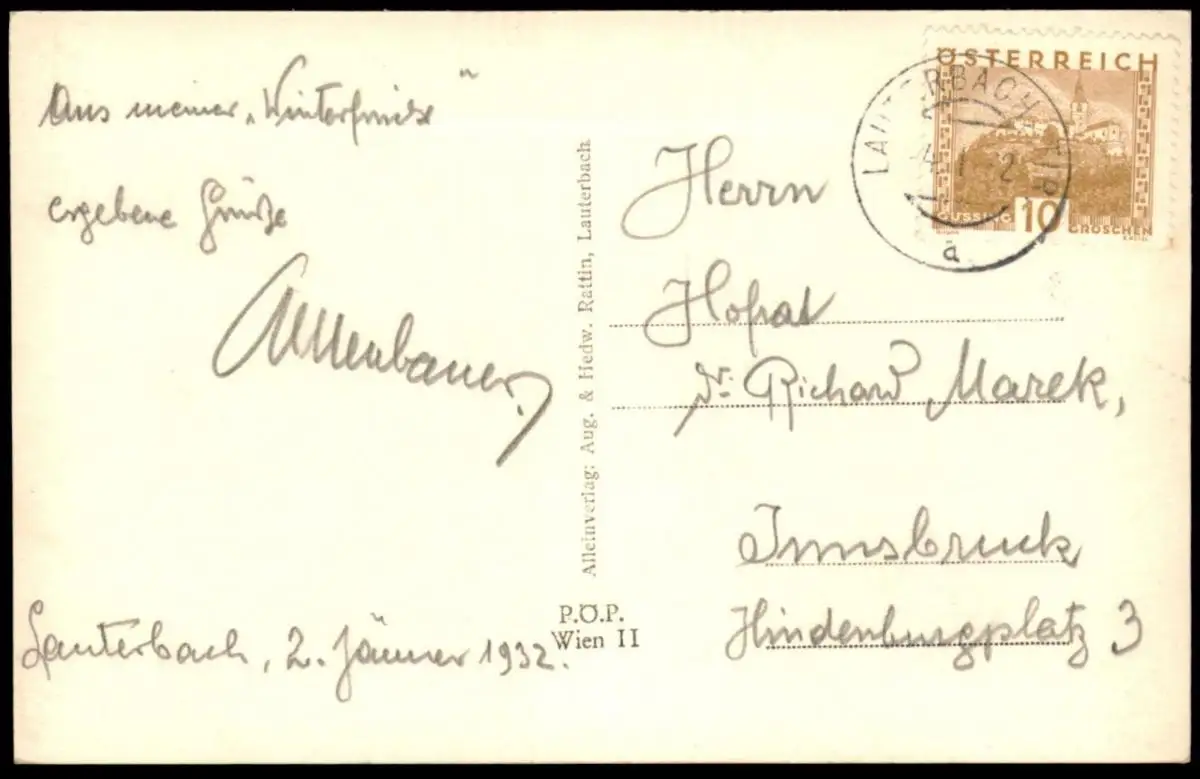 Aus meiner „Winterfrische“
ergebene Grüße
Lauterbach, 2. Jänner 1932.
Alleinverlag: Aug. & Hedw. Rattin, Lauterbach
P.Ö.P.
Wien II
ÖSTERREICH
GÜSSING 10 GROSCHEN
LAUTERBACH
a
Herrn
Hofrat
Dr. Richard Marek,
Innsbruck
Hindenburgplatz 3